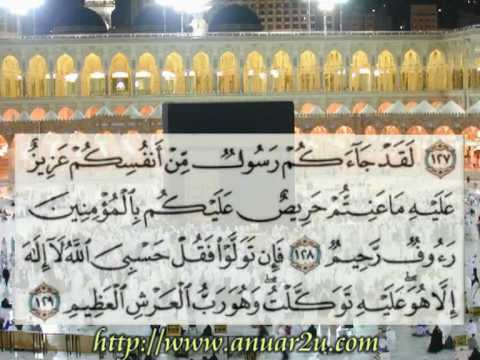 ١٢٧ لَقَدْ جَاءَكُمْ رَسُولٌ مِّنْ أَنفُسِكُمْ عَزِيزٌ
عَلَيْهِ مَا عَنِتُّمْ حَرِيصٌ عَلَيْكُم بِالْمُؤْمِنِينَ
رَءُوفٌ رَّحِيمٌ ١٢٨ فَإِن تَوَلَّوْا فَقُلْ حَسْبِيَ اللَّهُ لَا إِلَٰهَ
إِلَّا هُوَ ۖ عَلَيْهِ تَوَكَّلْتُ ۖ وَهُوَ رَبُّ الْعَرْشِ الْعَظِيمِ ١٢٩
http://www.anuar2u.com